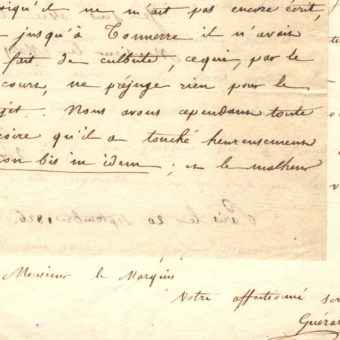 siqu'il ne m'ait pas encore écrit,
jusqu'à Tonnerre il n'avait
fait de culbute, ce qui, par le
cours, ne préjuge rien pour le
jet. Nous avons cependant toute
oire qu'il a touché heureusement
ion bis in idem; et le malheur
Paris le 20 septembre 1826
Monsieur le Marquis
Votre affectionné ser
Guérar